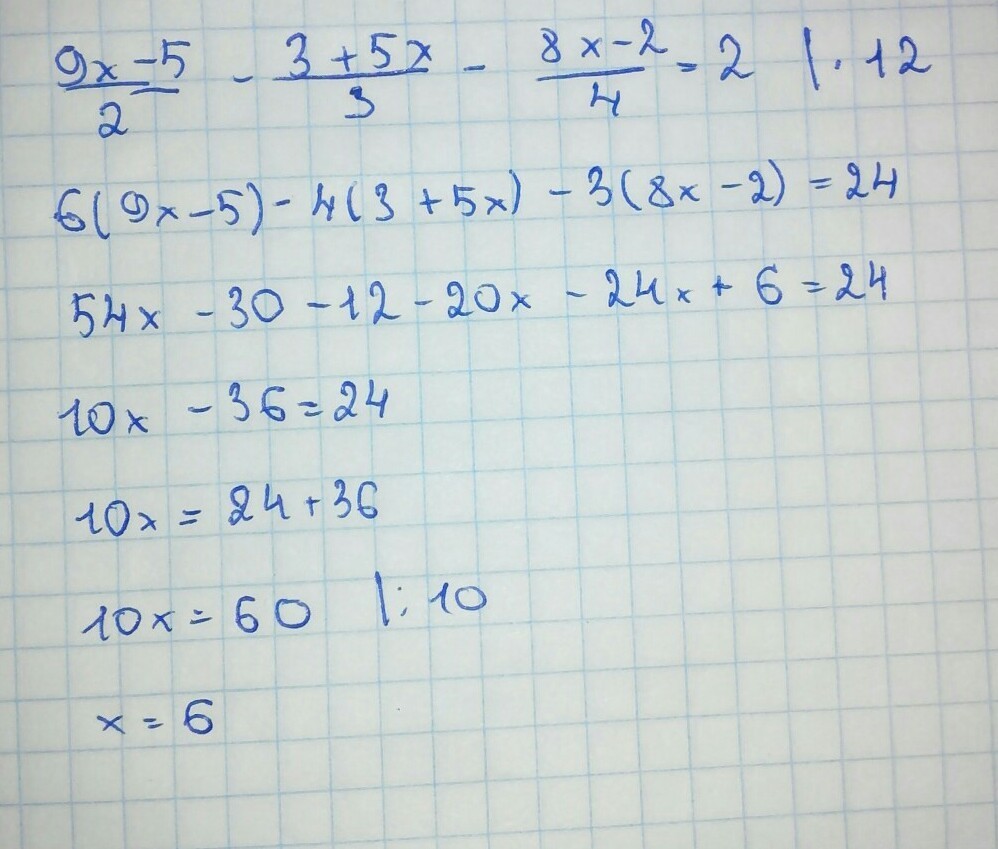 (9x-5)/2 - (3+5x)/3 - (8x-2)/4 = 2 |·12
6(9x-5)-4(3+5x)-3(8x-2)=24
54x-30-12-20x-24x+6=24
10x-36=24
10x=24+36
10x=60 |:10
x=6